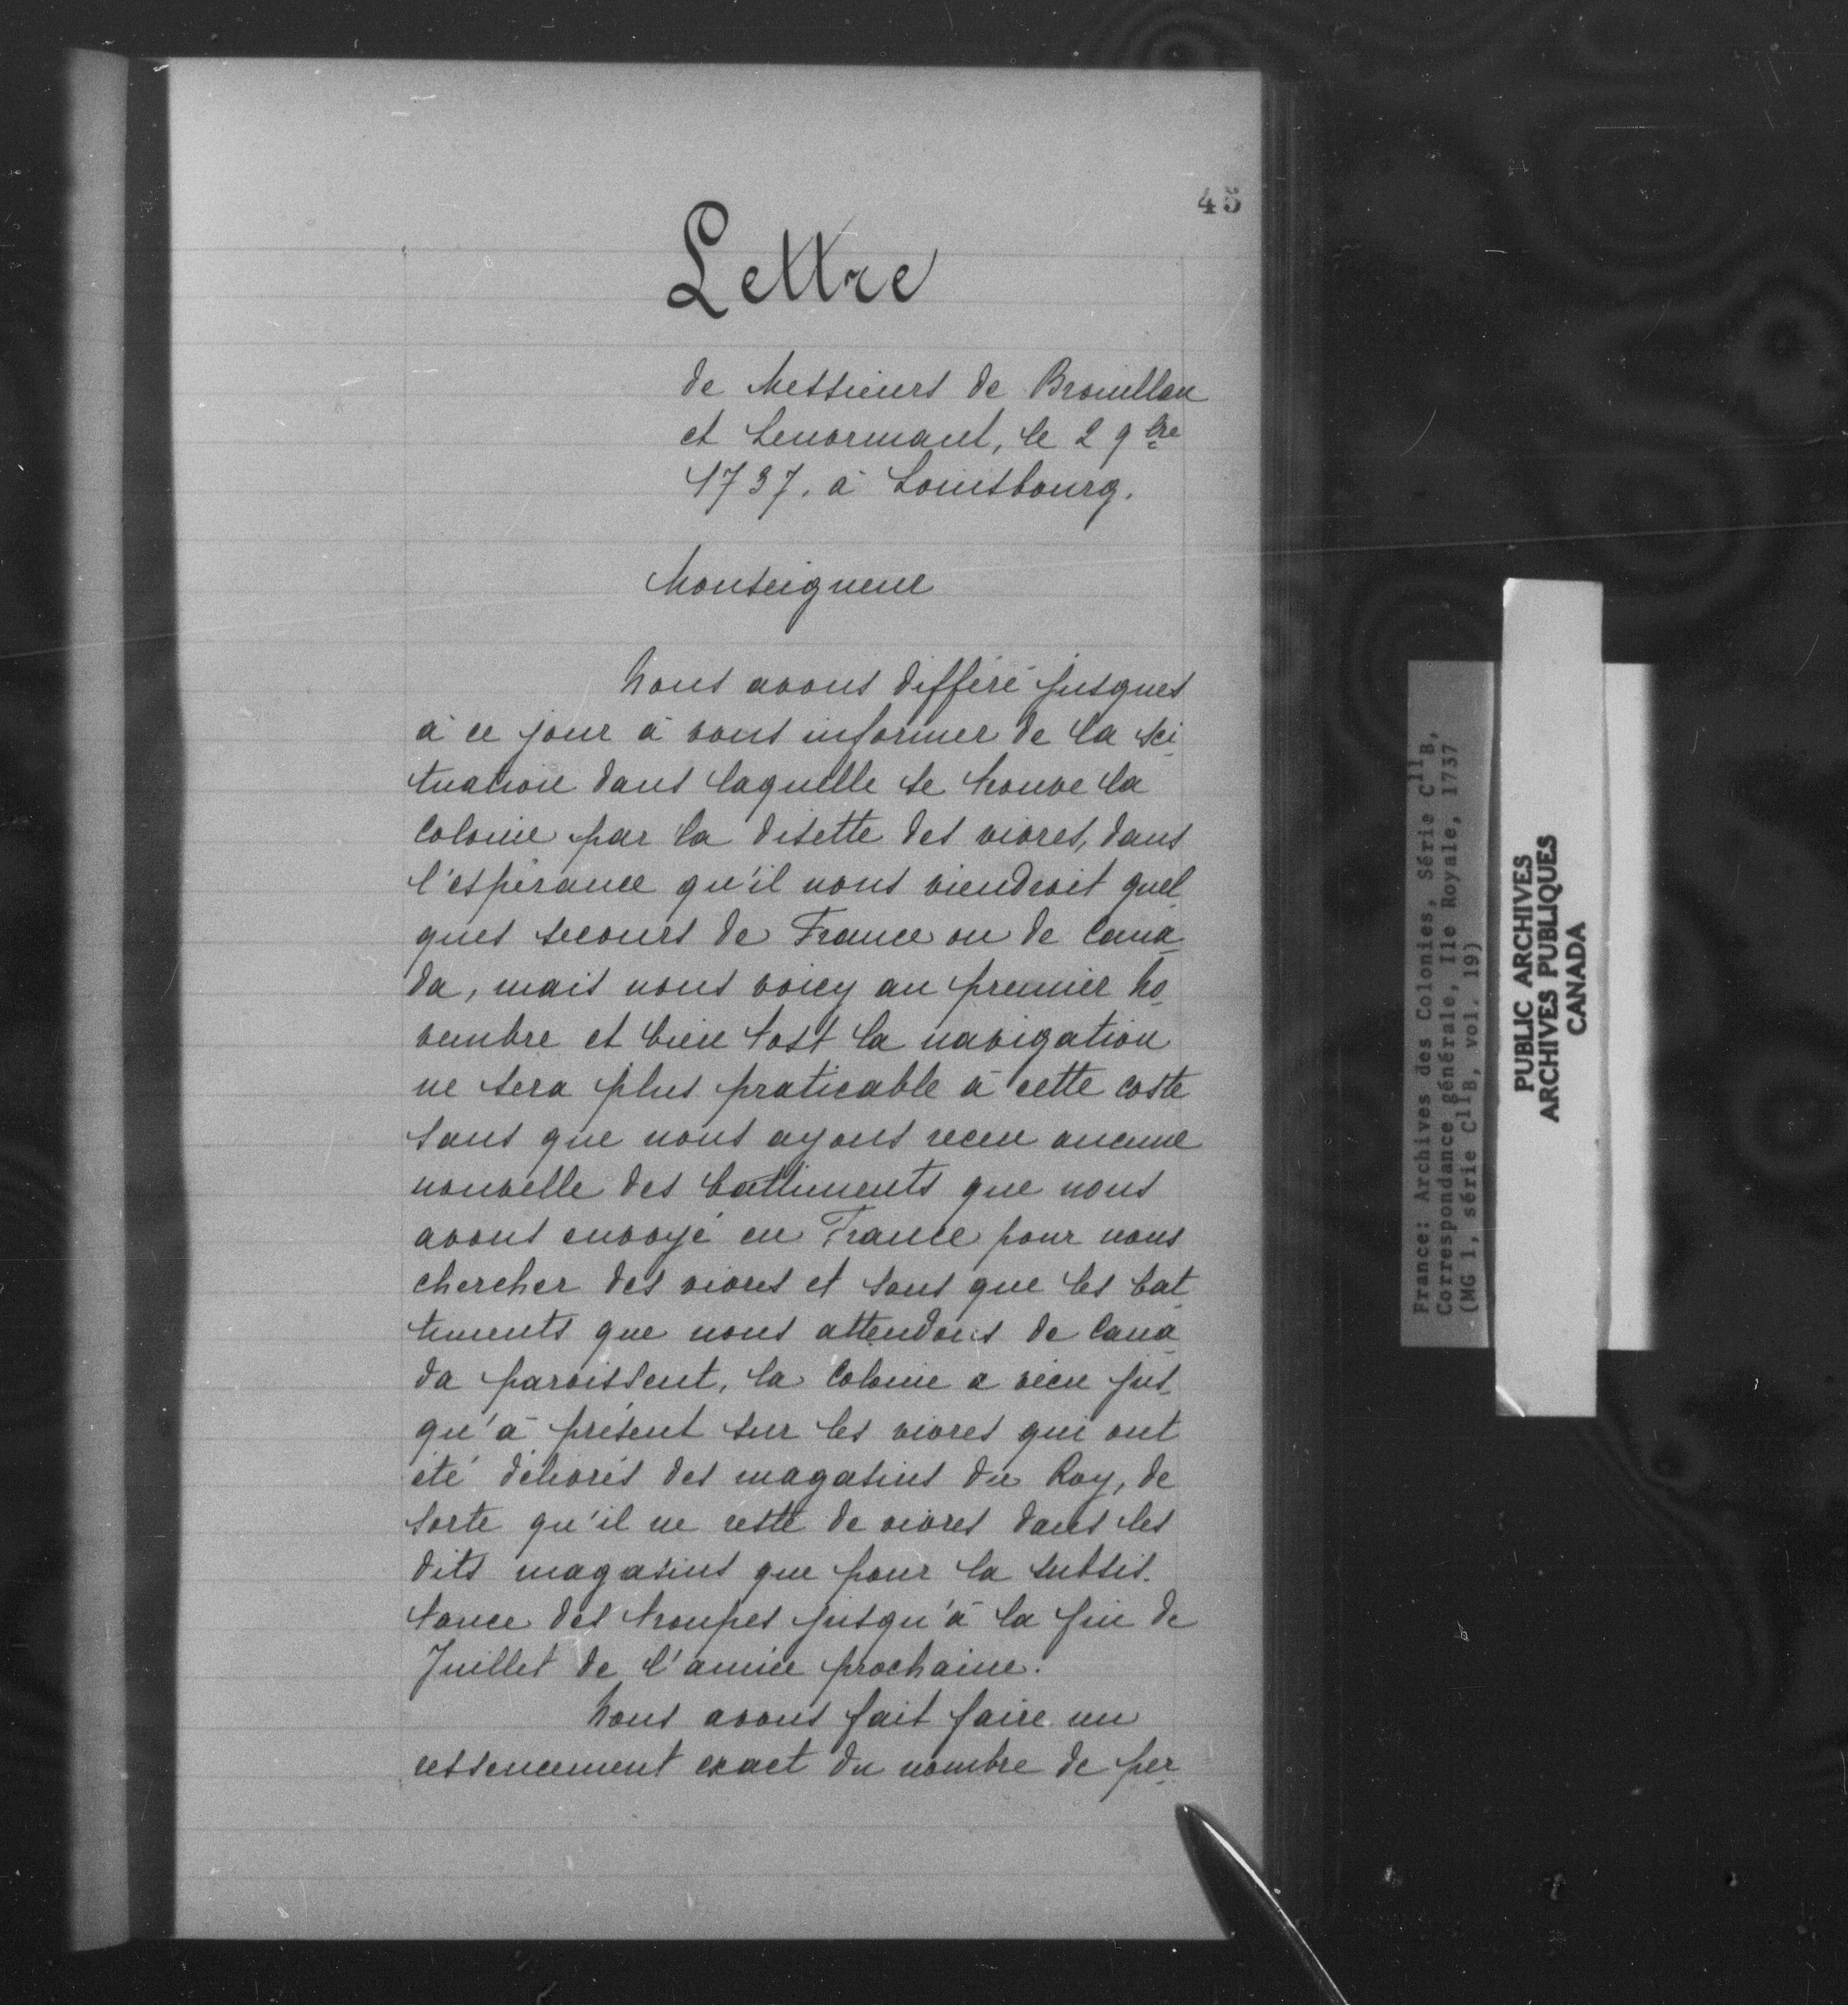 45
Lettre
de Messieurs de Brouillan
et Lenormant, le 2 9bre
1737, à Louisbourg.
Monseigneur
Nous avons différé jusques
à ce jour à vous informer de la sci
tuation dans laquelle se trouve la
Colonie par la disette des vivres, dans
l'espérance qu'il nous viendroit quel
ques secours de France ou de Cana
da, mais nous voicy au premier No
vembre et bien tost la navigation
ne sera plus praticable à cette coste
sans que nous ayons receu aucune
nouvelle des battiments que nous
avons envoyé en France pour nous
chercher des vivres et sans que les bat
timents que nous attendons de Cana
da paroissent, la Colonie a vécu jus
qu'à présent sur les vivres qui ont
été délivrés des magasins du Roy, de
sorte qu'il ne reste de vivres dans les
dits magasins que pour la subsis
tance des troupes jusqu'à la fin de
Juillet de l'année prochaine.
Nous avons fait faire un
ressencement exact du nombre de per
France: Archives des Colonies, Série C11B,
Correspondance générale, Ile Royale, 1737
(MG 1, série C11B, vol. 19)
PUBLIC ARCHIVES
ARCHIVES PUBLIQUES
CANADA